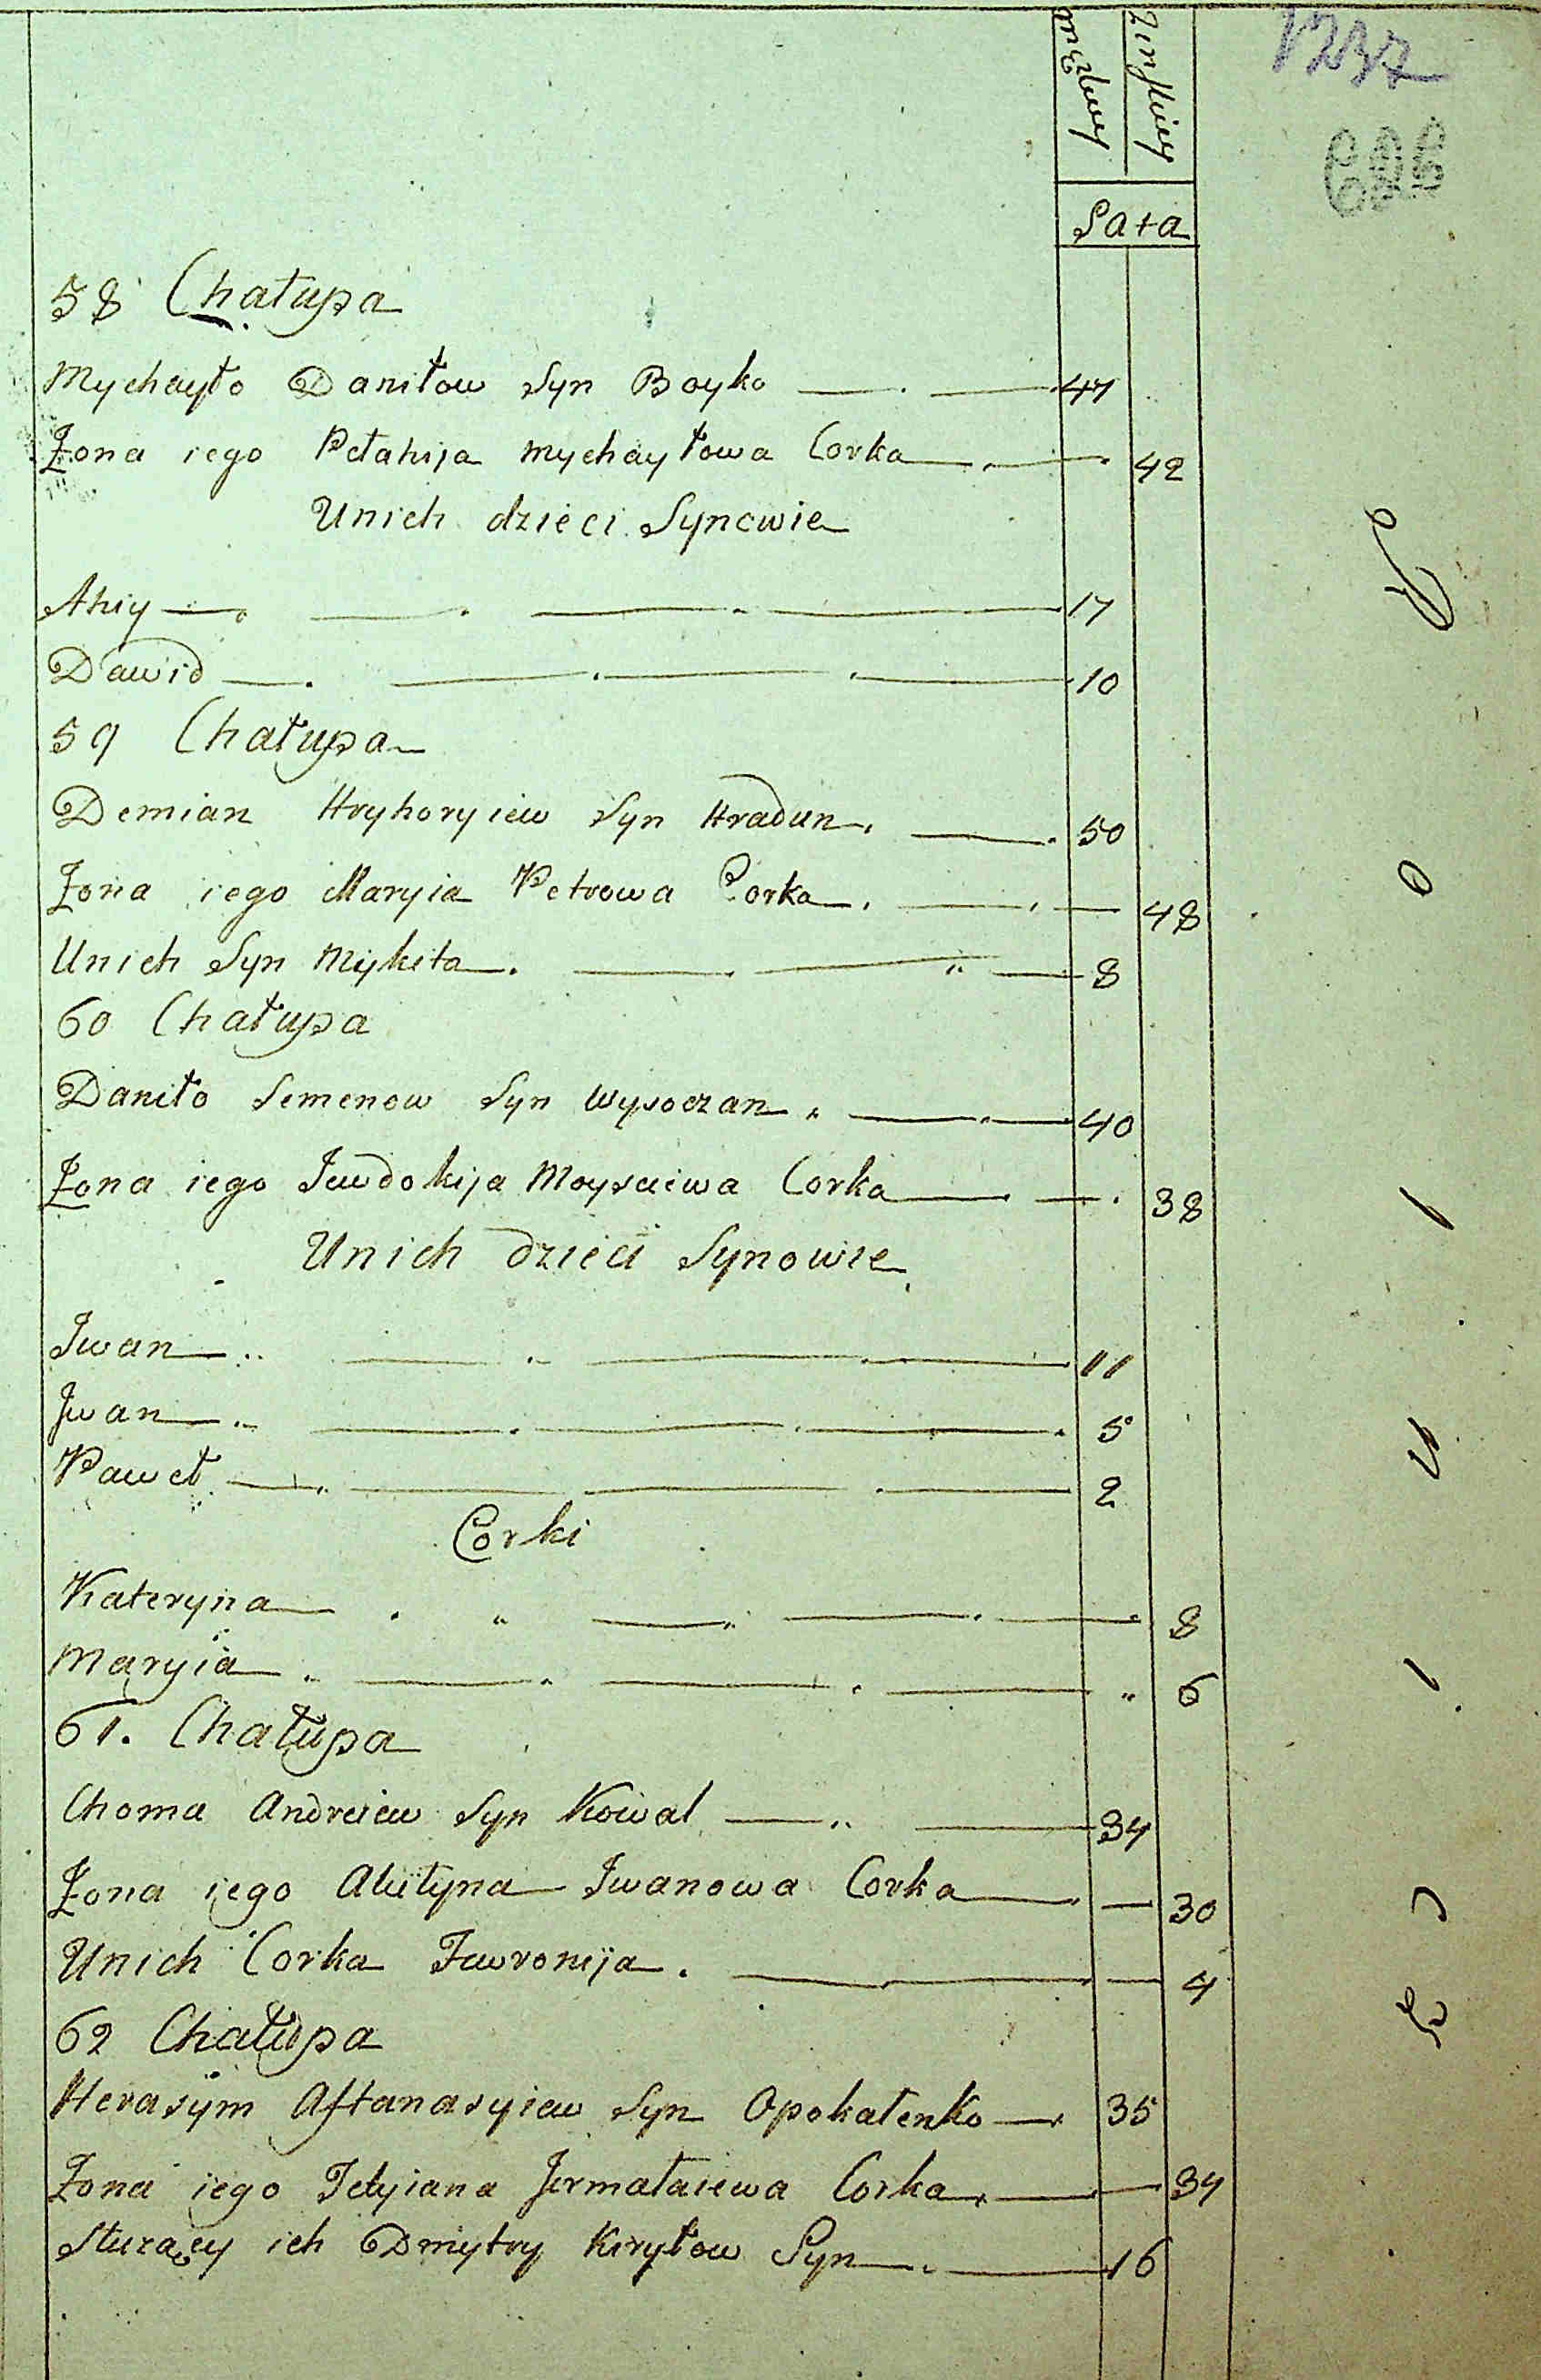 1237
męzkiey
Zenskiey
Lata
58 Chałupa
Mychayło Daniłow Syn Boyko 47
Żona iego Pełahija Mychayłowa Corka 42
Unich dzieci Synowie
Ahiy 17
Dawid 10
59 Chałupa
Demian Hryhoryiew Syn Hradun 50
Żona iego Maryia Petrowa Corka 48
Unich Syn Mykita 8
60 Chałupa
Daniło Semenow Syn Wysoczan 40
Żona iego Jewdokija Moyseiewa Corka 38
Unich dzieci Synowie
Iwan 11
Iwan 5
Paweł 2
Corki
Kateryna 8
Maryia 6
61. Chałupa
Choma Andreiew Syn Kowal 34
Żona iego Akiłyna Iwanowa Corka 30
Unich Corka Jewronija 4
62 Chałupa
Herasym Aftanasyiew Syn Opokałenko 35
Żona iego Tetyiana Jermałaiewa Corka 34
Służący ich Dmytry Kiryłow Syn 16